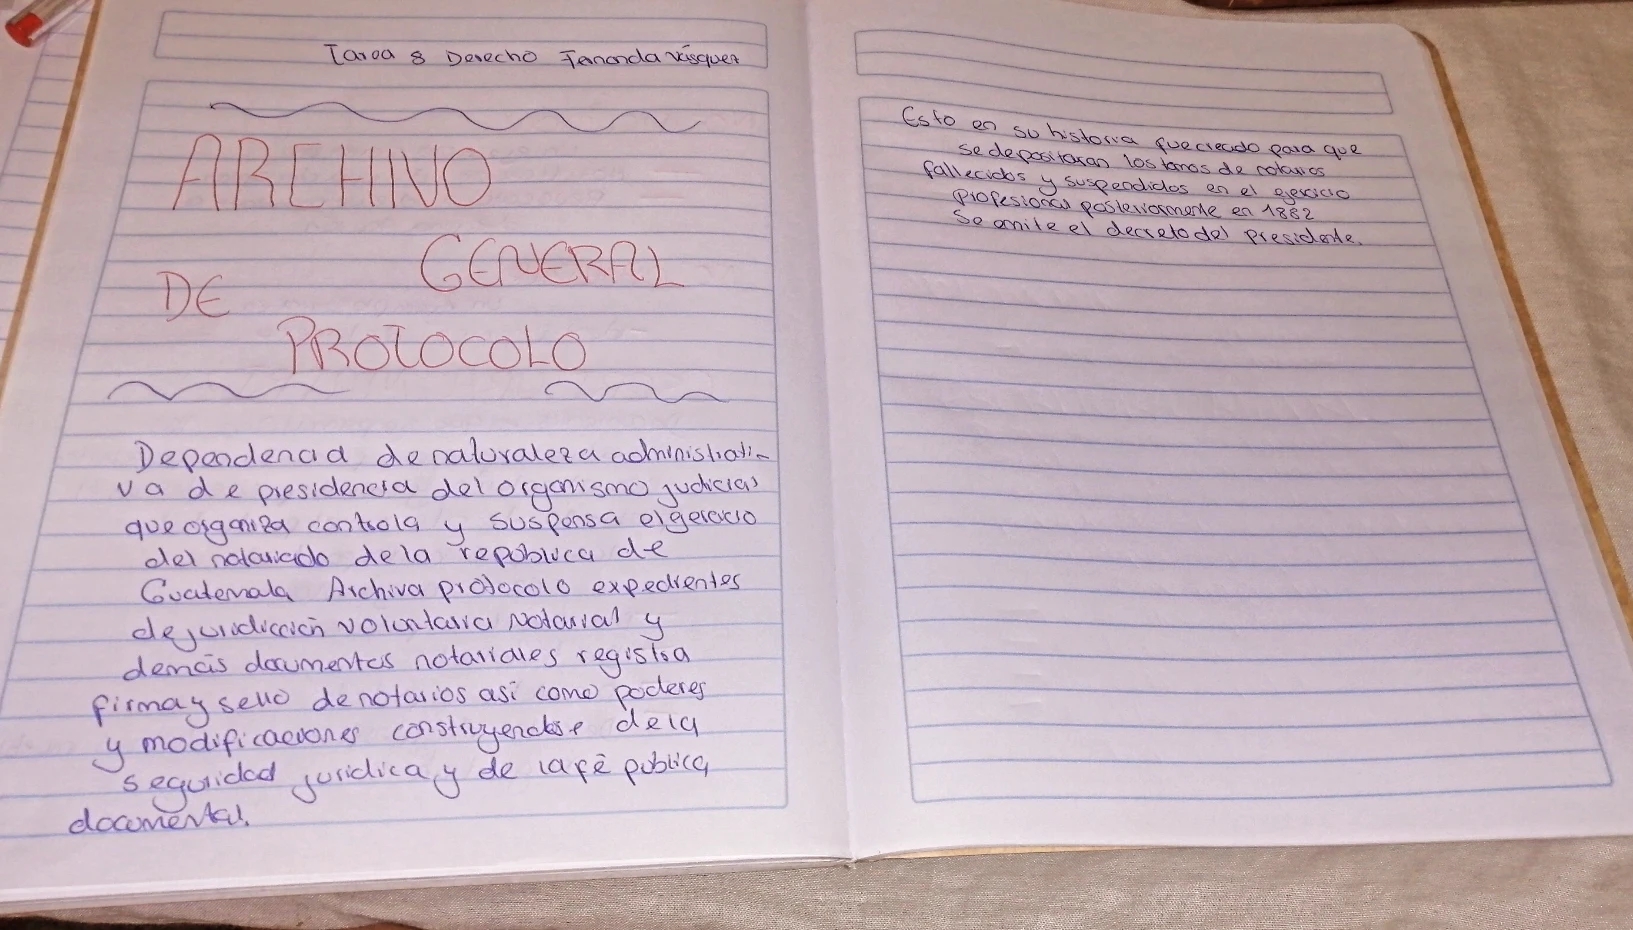 Tarea 8 Derecho Fernanda Vásquez
ARCHIVO
GENERAL
DE
PROTOCOLO
Dependencia de naturaleza administrati-
va de presidencia del organismo judicial
que organiza controla y suspensa el gercicio
del notariado de la república de
Guatemala Archiva protocolo expedientes
de juridicción voluntaria Notarial y
demás documentos notariales registra
firma y sello de notarios así como poderes
y modificaciones construyendose de la
seguridad juridica y de la fé publica
documental.
Esto en su historia fue creado para que
se depositaran los tomos de notarios
fallecidos y suspendidos en el ejercicio
profesional posteriormente en 1882
Se emite el decreto del presidente.